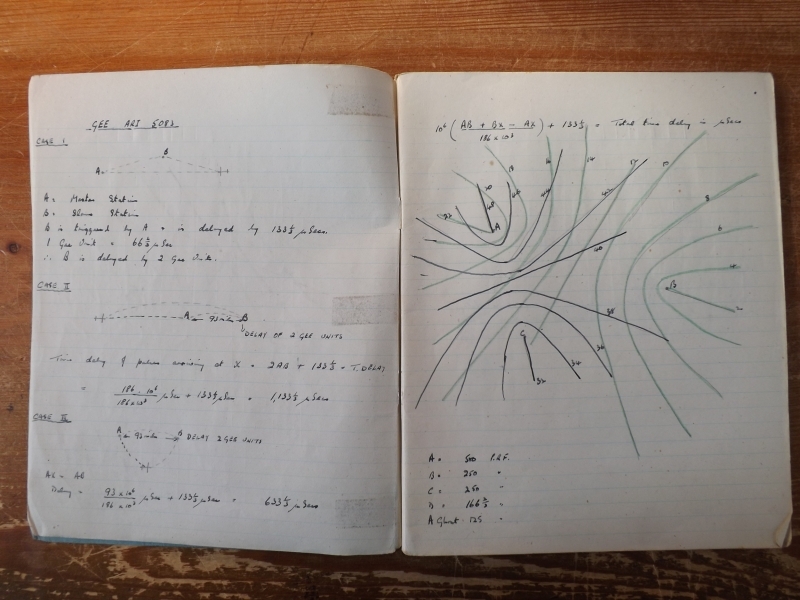 GEE ARI 5083
CASE I
B
A
A = Master Station
B = Slave Station
B is triggered by A & is delayed by 133⅓ μSecs.
1 Gee Unit = 66⅔ μSec
∴ B is delayed by 2 Gee Units.
CASE II
A 93 mls B
DELAY OF 2 GEE UNITS
Time delay of pulses arriving at X = 2AB + 133⅓ = T. DELAY
= 186 × 10⁶ / 186 × 10³ μSec + 133⅓ μSec = 1,133⅓ μSecs
CASE III
A 93 mls B DELAY 2 GEE UNITS
AX = AB
Delay = 93 × 10⁶ / 186 × 10³ μSec + 133⅓ μSec = 633⅓ μSecs
10⁶ (AB + Bx − Ax / 186 × 10³) + 133⅓ = Total time delay in μSecs
22 20 18 16 14 12 10
48 46 44 42
8
A
6
40
4
B
38
2
C
36
34
32
A = 500 P.R.F.
B = 250 "
C = 250 "
D = 166⅔ "
A Ghost 125 "